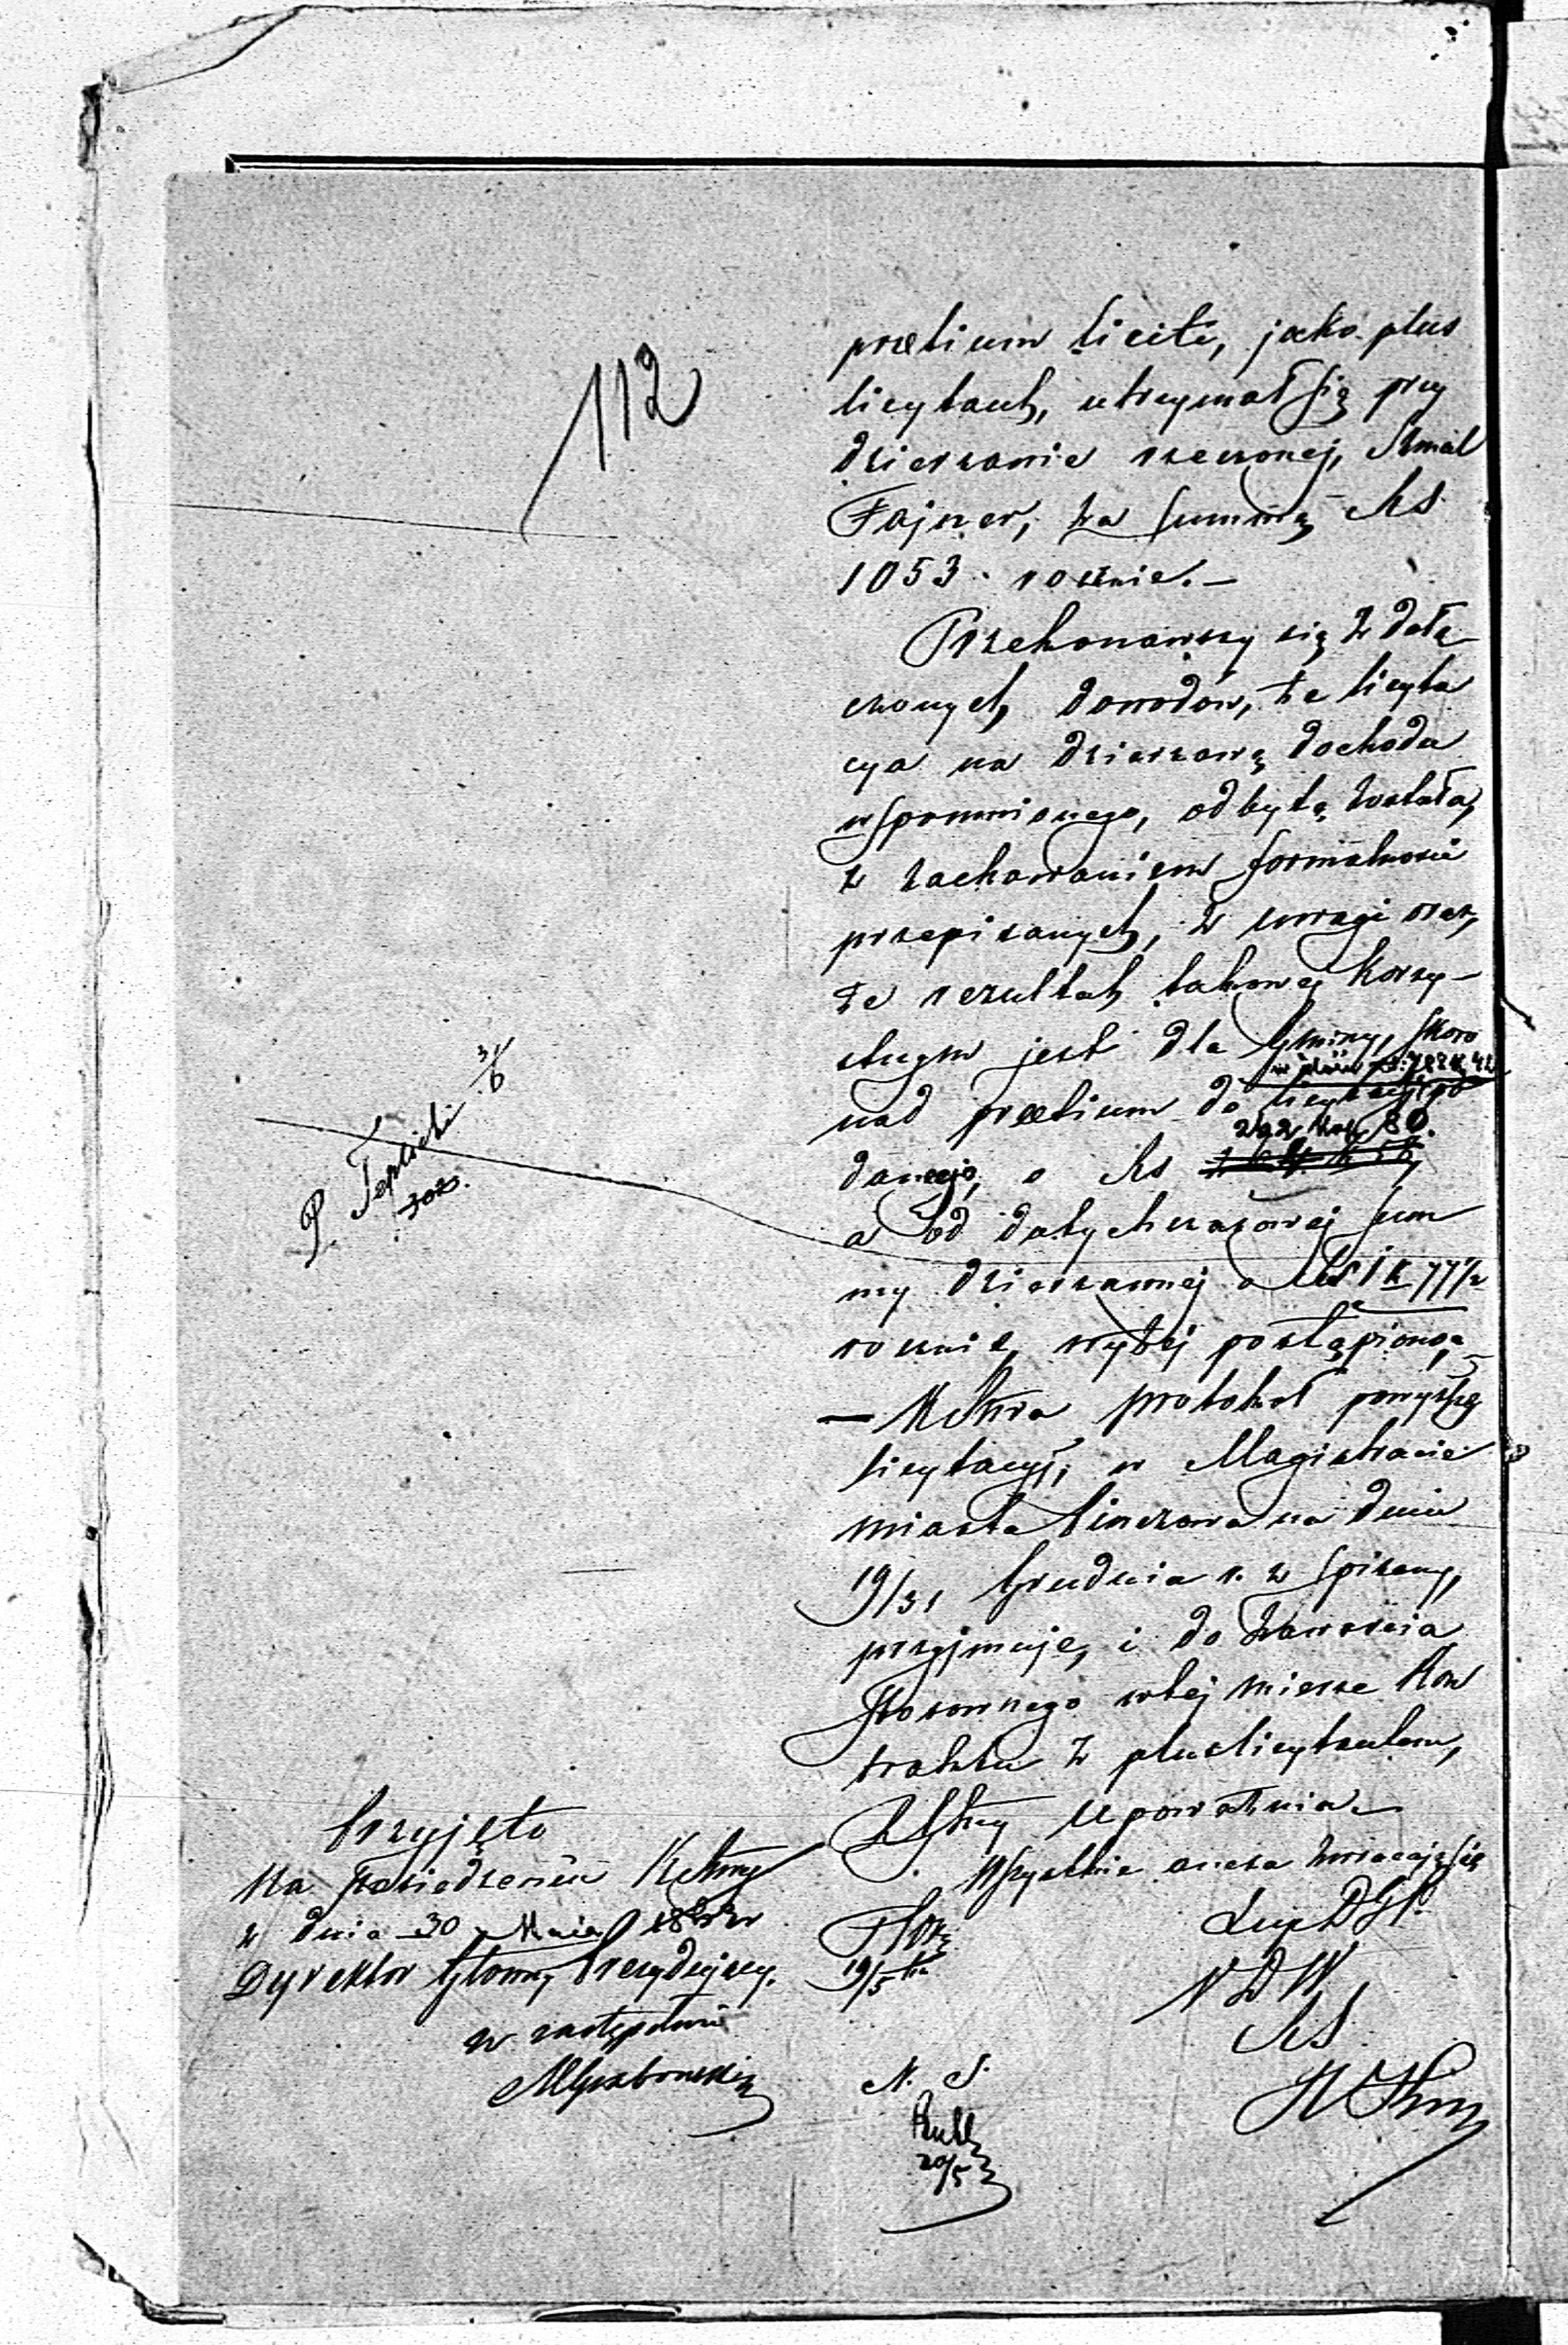 112
prætium liciti, jako plus
licytant, utrzymał się przy
dzierżawie rzeczonej, Szmul
Fajner, za summę Rs
1053 rocznie. —
Przekonawszy się z dołą-
czonych dowodów, że licyta
cya na dzierżawę dochodu
wspomnionego, odbytą została,
z zachowaniem formalności
przepisanych, z uwagi oraz,
że rezultat takowej korzy-
stnym jest dla Gminy, skoro
nad prætium do licytacyi po
danego, o Rs 292 kop 80.
a od dotychczasowej sum
my dzierżawnej o Rs 1 k 77½
rocznie, wyżej postąpiono,
— K Rzra protokoł powyższej
licytacyi, w Magistracie
miasta Pinczowa na dniu
19/31 Grudnia r. z spisany,
przyjmuje, i do zawarcia
stosownego w tej mierze kon
traktu z pluslicytantem,
upoważnia. —
Wszystkie anexa zwracają się
P. Teplicki 3/6
Przyjęto
Na posiedzeniu
z dnia 30 Maja
Dyrektor Główny Prezydujący.
w zastępstwie
19/5
N D W
RS
N. S.
20/5